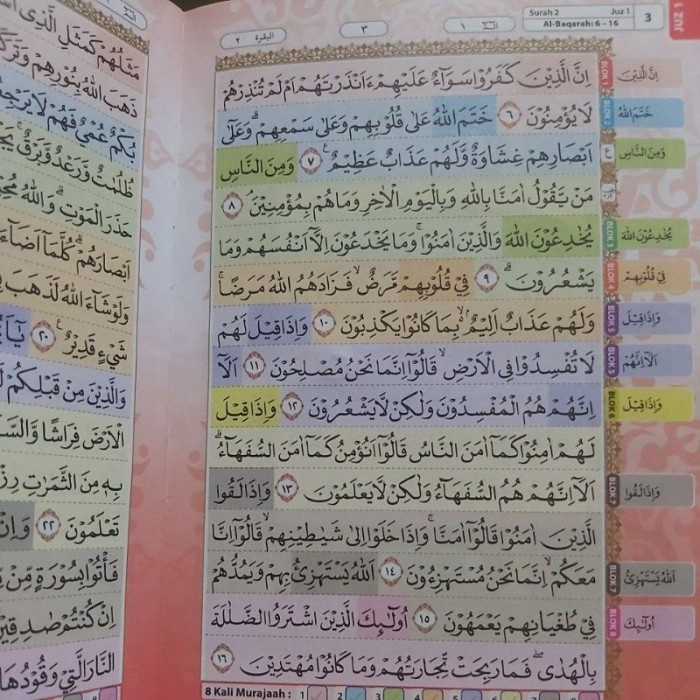 Surah 2 Juz 1
Al-Baqarah: 6 - 16
3
JUZ 1
٣
البقرة ٢
اِنَّ الَّذِيْنَ كَفَرُوْا سَوَاۤءٌ عَلَيْهِمْ ءَاَنْذَرْتَهُمْ اَمْ لَمْ تُنْذِرْهُمْ
لَا يُؤْمِنُوْنَ ٦ خَتَمَ اللّٰهُ عَلٰى قُلُوْبِهِمْ وَعَلٰى سَمْعِهِمْ ۗ وَعَلٰٓى
اَبْصَارِهِمْ غِشَاوَةٌ وَّلَهُمْ عَذَابٌ عَظِيْمٌ ࣖ ٧ وَمِنَ النَّاسِ
مَنْ يَّقُوْلُ اٰمَنَّا بِاللّٰهِ وَبِالْيَوْمِ الْاٰخِرِ وَمَا هُمْ بِمُؤْمِنِيْنَ ۘ ٨
يُخٰدِعُوْنَ اللّٰهَ وَالَّذِيْنَ اٰمَنُوْا ۚ وَمَا يَخْدَعُوْنَ اِلَّآ اَنْفُسَهُمْ وَمَا
يَشْعُرُوْنَ ۗ ٩ فِيْ قُلُوْبِهِمْ مَّرَضٌ ۙ فَزَادَهُمُ اللّٰهُ مَرَضًا ۚ
وَلَهُمْ عَذَابٌ اَلِيْمٌ ۢ ەۙ بِمَا كَانُوْا يَكْذِبُوْنَ ١٠ وَاِذَا قِيْلَ لَهُمْ
لَا تُفْسِدُوْا فِى الْاَرْضِ ۙ قَالُوْٓا اِنَّمَا نَحْنُ مُصْلِحُوْنَ ١١ اَلَآ
اِنَّهُمْ هُمُ الْمُفْسِدُوْنَ وَلٰكِنْ لَّا يَشْعُرُوْنَ ١٢ وَاِذَا قِيْلَ
لَهُمْ اٰمِنُوْا كَمَآ اٰمَنَ النَّاسُ قَالُوْٓا اَنُؤْمِنُ كَمَآ اٰمَنَ السُّفَهَاۤءُ ۗ
اَلَآ اِنَّهُمْ هُمُ السُّفَهَاۤءُ وَلٰكِنْ لَّا يَعْلَمُوْنَ ١٣ وَاِذَا لَقُوا
الَّذِيْنَ اٰمَنُوْا قَالُوْٓا اٰمَنَّا ۚ وَاِذَا خَلَوْا اِلٰى شَيٰطِيْنِهِمْ ۙ قَالُوْٓا اِنَّا
مَعَكُمْ ۙ اِنَّمَا نَحْنُ مُسْتَهْزِءُوْنَ ١٤ اَللّٰهُ يَسْتَهْزِئُ بِهِمْ وَيَمُدُّهُمْ
فِيْ طُغْيَانِهِمْ يَعْمَهُوْنَ ١٥ اُولٰۤىِٕكَ الَّذِيْنَ اشْتَرَوُا الضَّلٰلَةَ
بِالْهُدٰى ۖ فَمَا رَبِحَتْ تِّجَارَتُهُمْ وَمَا كَانُوْا مُهْتَدِيْنَ ١٦
8 Kali Murajaah : 1 2 3 4 5 6 7
BLOK 1 اِنَّ الَّذِيْنَ
BLOK 2 خَتَمَ اللّٰهُ
وَمِنَ النَّاسِ
BLOK 3 يُخٰدِعُوْنَ اللّٰهَ
BLOK 4 فِيْ قُلُوْبِهِمْ
BLOK 5 وَاِذَا قِيْلَ
BLOK 5 اَلَآ اِنَّهُمْ
BLOK 6 وَاِذَا قِيْلَ
BLOK 7 وَاِذَا لَقُوا
BLOK 7 اَللّٰهُ يَسْتَهْزِئُ
BLOK 8 اُولٰۤىِٕكَ
مَثَلُهُمْ كَمَثَلِ الَّذِى
ذَهَبَ اللّٰهُ بِنُوْرِهِمْ
بُكْمٌ عُمْيٌ فَهُمْ لَا
ظُلُمٰتٌ وَّرَعْدٌ وَّبَرْقٌ
حَذَرَ الْمَوْتِ ۗ وَاللّٰهُ
اَبْصَارَهُمْ ۗ كُلَّمَآ اَضَاۤءَ
وَلَوْ شَاۤءَ اللّٰهُ لَذَهَبَ
شَيْءٍ قَدِيْرٌ ࣖ ٢٠
وَالَّذِيْنَ مِنْ قَبْلِكُمْ
الْاَرْضَ فِرَاشًا
بِهٖ مِنَ الثَّمَرٰتِ
تَعْلَمُوْنَ ٢٢
فَأْتُوْا بِسُوْرَةٍ مِّنْ
اِنْ كُنْتُمْ صٰدِقِيْنَ
النَّارَ الَّتِيْ وَقُوْدُهَا